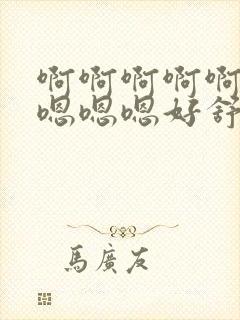 啊啊啊啊啊
嗯嗯嗯好舒
馬廣友